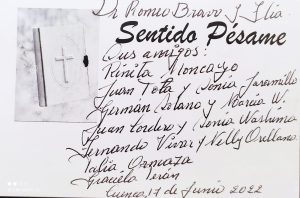 Dr Romeo Bravo y Ilia
Sentido Pésame
Sus amigos:
Rinita Moncayo
Juan Tola y Sonia Jaramillo
Germán Solano y María W.
Juan Cordero y Sonia
Fernando Vivar y Nelly Orellana
Talia
Graciela Terán
Cuenca, 17 de Junio 2022